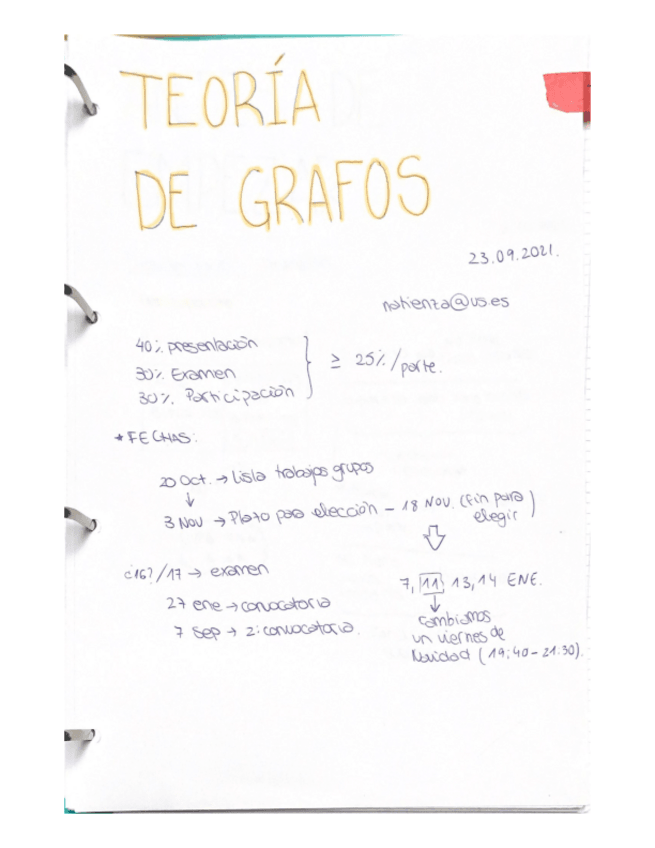 TEORÍA
DE GRAFOS
23.09.2021.
natienza@us.es
40% presentación
30% Examen
30% Participación
≥ 25% / parte.
* FECHAS:
20 Oct. → Lista trabajos grupos
↓
3 Nov → Plazo para elección - 18 NOV. (Fin para elegir)
¿16?/17 → examen
7, 11, 13, 14 ENE.
27 ene → convocatoria
7 Sep → 2ª convocatoria.
cambiamos
un viernes de
Navidad (19:40-21:30).